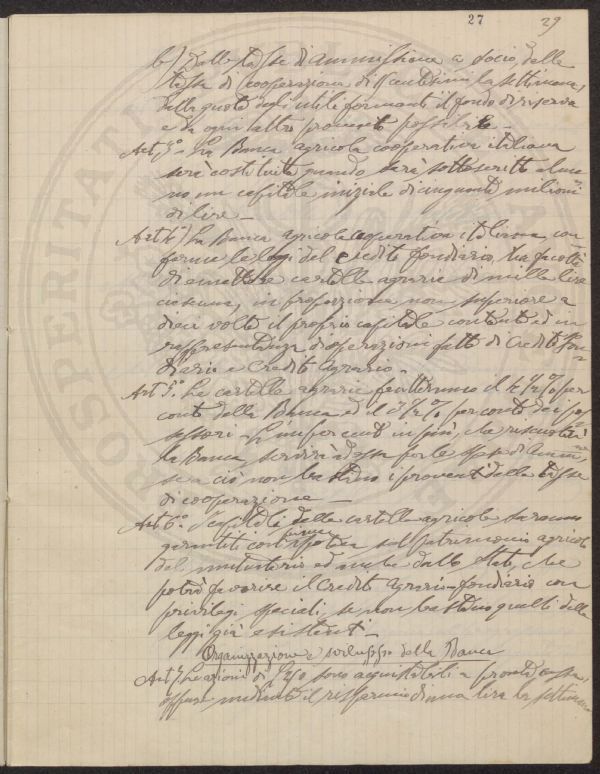 27 29
b) Dalle tasse di ammissione a socio, dalle
tasse di cooperazione di centesimi la settimana,
dalle quote degli utili formanti il fondo di riserva
e da ogni altro provento possibile –
Art 3º. La Banca agricola cooperativa italiana
sarà costituita quando sarà sottoscritto alme
no un capitale iniziale di cinquanta milioni
di lire –
Art 4º) La Banca agricola cooperativa italiana, con
forme le leggi del credito fondiario, ha facoltà
di emettere cartelle agrarie di mille lire
ciascuna, in proporzione non superiore a
dieci volte il proprio capitale contante ed in
rappresentanza di operazioni fatte di Credito Fon
diario e Credito Agrario –
Art 5º. Le cartelle agrarie frutteranno il 4 1/2 % per
conto della Banca ed il 3 1/2 % per conto dei pos
sessori – L'un per cento in più, che riscuoterà
la Banca, servirà ad essa per le spese di
se a ciò non bastino i proventi delle tasse
di cooperazione –
Art 6º I capitali delle cartelle agricole saranno
garantiti con ipoteca sul patrimonio agricolo
del mutuatario ed anche dallo Stato, che
potrà favorire il Credito Agrario-fondiario con
privilegi speciali, se non bastino quelli delle
leggi già esistenti –
Organizzazione e sviluppo della Banca
Art 7. Le azioni di L. 250 sono acquistabili a pronta cassa,
oppure mediante il risparmio di una lira la settimana